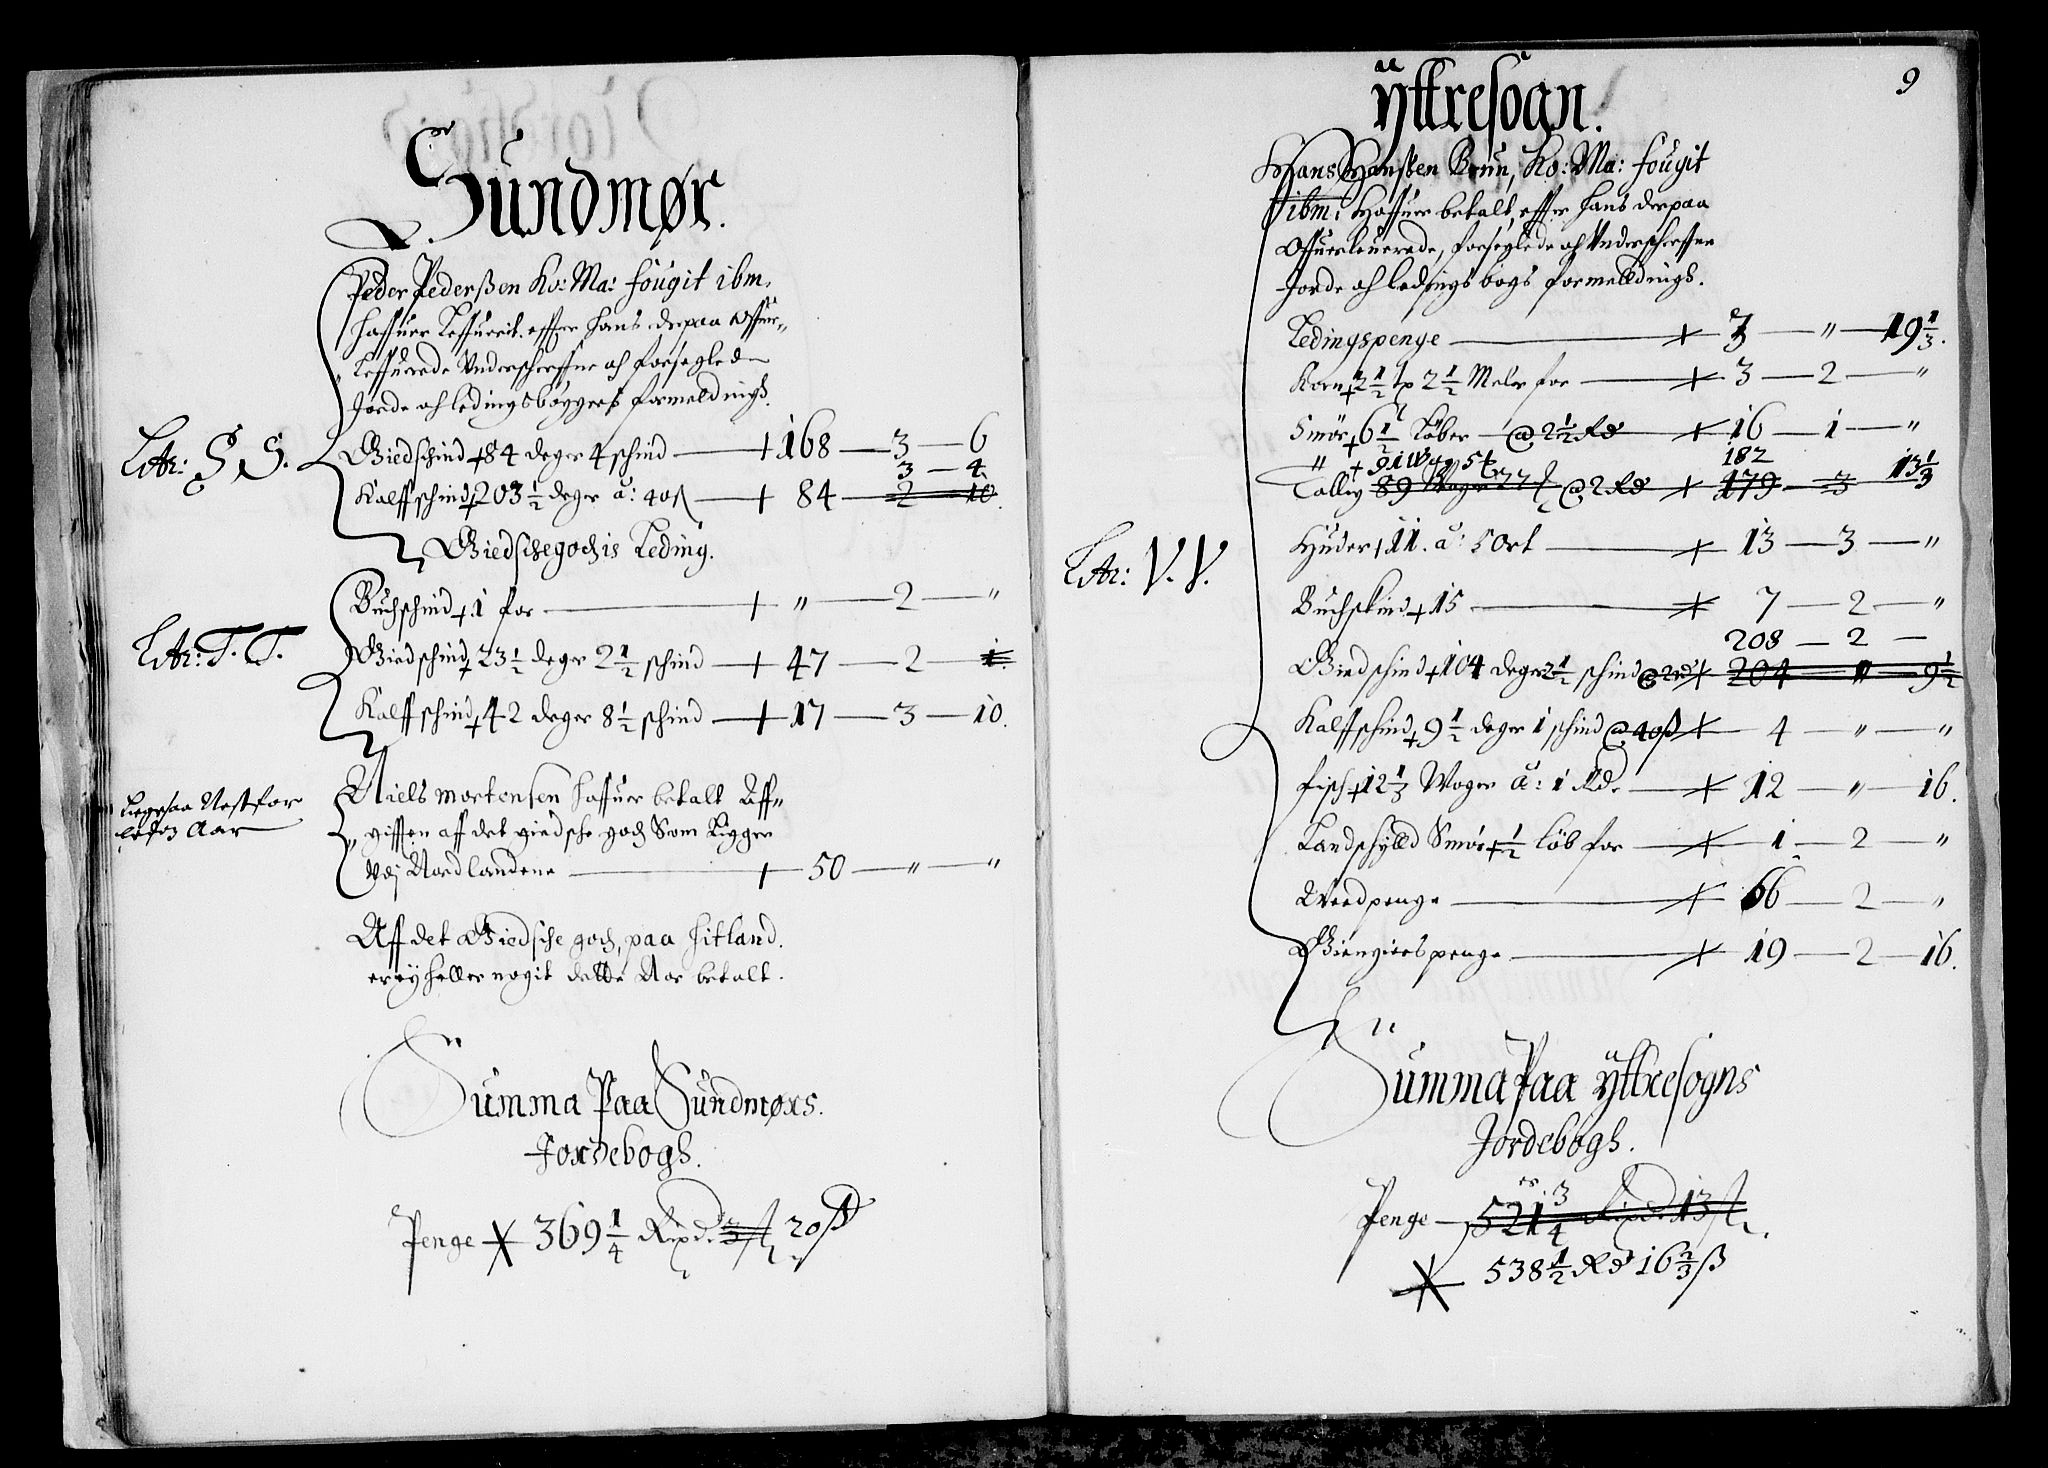 Sundmør.
Peder Pederßen Ko: Ma: fougit ibm.
haffuer Leffuerit effter hans derpaa offuer-
Leffuerede Underschreffne och forseglede
Jorde och ledingsbøggers formeldings.
Litr: S. S.
Giedschind + 84 deger 4 schind + 168 — 3 — 6
3 — 4
Kalffschind + 203 1/2 deger à: 40 ß + 84 — 2 — 10.
Giedschegodhis Leding.
Buchschind + 1 for + " — 2 — "
Litr: T. T.
Giedschind + 23 1/2 deger 2 1/2 schind + 47 — 2 — 1.
Kalffschind + 42 deger 8 1/2 schind + 17 — 3 — 10.
Niels Mortensen haffuer betalt Aff-
giffen aff det giedsche godh Som Ligger
Udj Nordlandene + 50 — " — "
Aff det Giedsche godh, paa Hitland.
er ey heller nogit dette Aar betalt.
Summa Paa Sundmørs.
Jordebogh.
Penge 369 1/4 Rixd. 3 ß 20 ß
9
Yttresogn.
Hans Hanßen Bruun, Ko: Ma: fougit
ibm: Haffuer betalt, effter hans derpaa
Offuerleuerede, forseglede och Underschreffne
Jorde och ledings bogs formelldings.
Ledingspenge + 3 — " — 19 1/3.
Korn + 2 1/2 tr 2 1/2 Meler for + 3 — 2 — "
Smør + 6 1/2 Løber @ 2 1/2 Rd + 16 — 1 — "
" + 91 Wog 5 182 13 1/3
Tallig 89 Woger @ 2 Rd + 179 — 3
Litr: V. V.
Huder + 11. à: 5 Ort + 13 — 3 — "
Buchskind + 15 + 7 — 2 — "
208 — 2 —
Giedschind + 104 deger 2 1/2 schind @ 2 rd + 204 — " — 9 1/2
Kalffschind + 9 1/2 deger 1 schind @ 40 ß + 4 — " — "
fisch + 12 1/3 Woger à: 1 Rd. + 12 — " — 16.
Landschylld Smør + 1/2 løb for + 1 — 2 — "
Weedpenge + 66 — 2 — "
Giengierspenge + 19 — 2 — 16.
Summa Paa Yttresogns
Jordebogh.
Penge 521 3/4 Rixd. 13 ß
538 1/2 Rd 16 2/3 ß